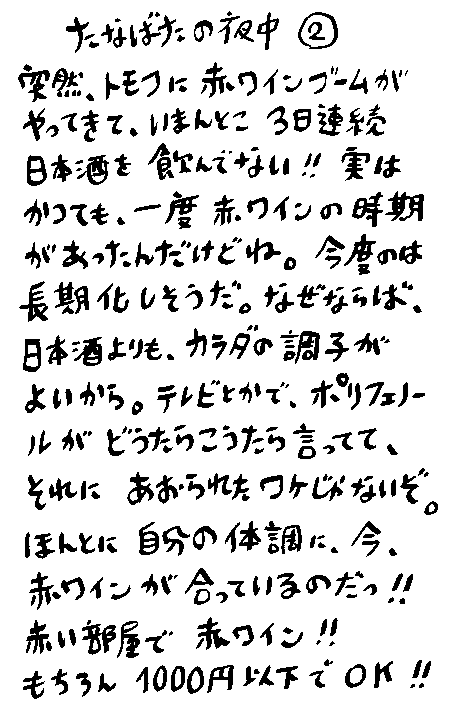 たなばたの夜中 ②
突然、トモフに赤ワインブームが
やってきて、いまんとこ 3日連続
日本酒を飲んでない!! 実は
かつても、一度赤ワインの時期
があったんだけどね。今度のは
長期化しそうだ。なぜならば、
日本酒よりも、カラダの調子が
よいから。テレビとかで、ポリフェノー
ルがどうたらこうたら言ってて、
それに あおられたワケじゃないぞ。
ほんとに自分の体調に、今、
赤ワインが合っているのだっ!!
赤い部屋で 赤ワイン!!
もちろん 1000円以下でOK!!